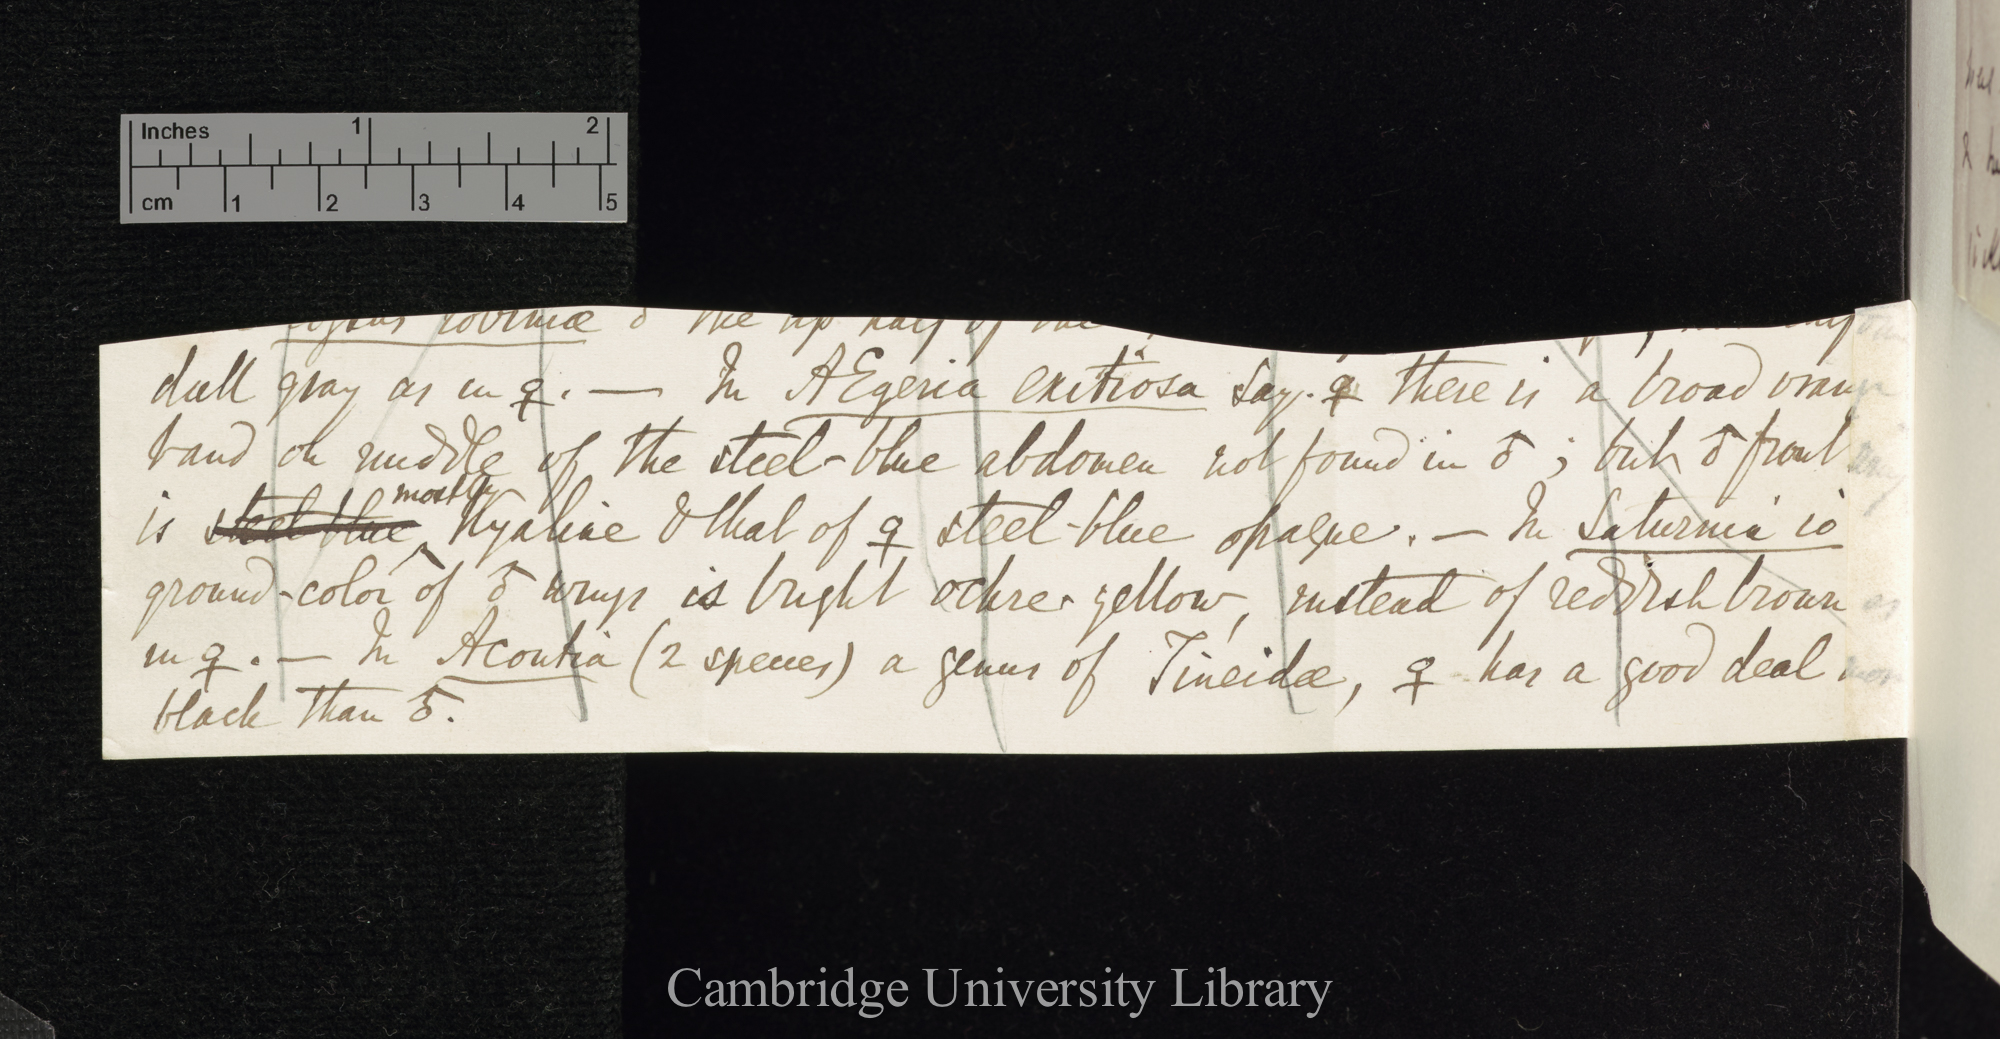 Inches 1 2
cm 1 2 3 4 5
robiniæ ♂ the
dull gray as in ♀. — In AEgeria exitiosa Say. ♀ there is a broad oran
band on middle of the steel-blue abdomen not found in ♂; but ♂ front
mostly
is steel blue Hyaline & that of ♀ steel-blue opaque. — In Saturnia io
ground-color of ♂ wings is bright ochre-yellow, instead of reddish brown as
in ♀. — In Acontia (2 species) a genus of Tineidæ, ♀ has a good deal
black than ♂.
Cambridge University Library